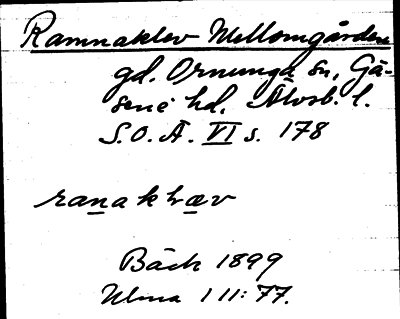 Ramnaklev Mellomgården
gd. Ornunga sn, Gä-
sene hd. Älvsb. l.
S.O.Ä. VI s. 178
ranakhæv
Bäck 1899
Ulma 111:77.